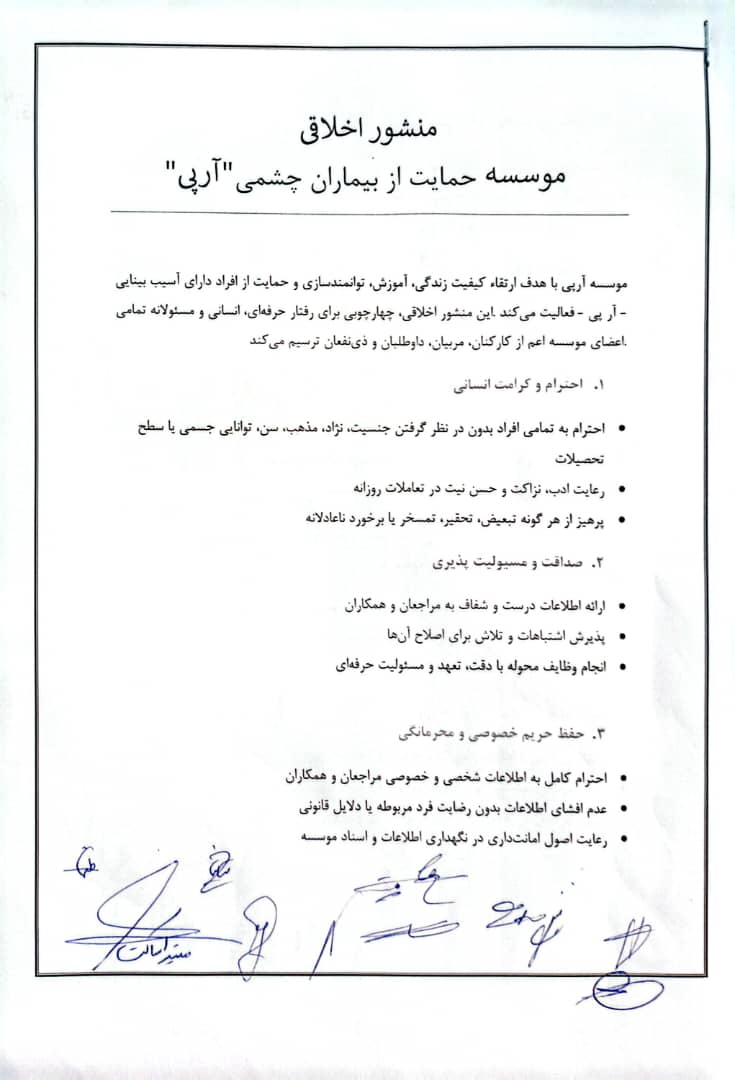 منشور اخلاقی
موسسه حمایت از بیماران چشمی "آرپی"
موسسه آرپی با هدف ارتقاء کیفیت زندگی، آموزش، توانمندسازی و حمایت از افراد دارای آسیب بینایی
- آر پی - فعالیت می‌کند .این منشور اخلاقی، چهارچوبی برای رفتار حرفه‌ای، انسانی و مسئولانه تمامی
.اعضای موسسه اعم از کارکنان، مربیان، داوطلبان و ذی‌نفعان ترسیم می‌کند
۱. احترام و کرامت انسانی
• احترام به تمامی افراد بدون در نظر گرفتن جنسیت، نژاد، مذهب، سن، توانایی جسمی یا سطح
تحصیلات
• رعایت ادب، نزاکت و حسن نیت در تعاملات روزانه
• پرهیز از هر گونه تبعیض، تحقیر، تمسخر یا برخورد ناعادلانه
۲. صداقت و مسیولیت پذیری
• ارائه اطلاعات درست و شفاف به مراجعان و همکاران
• پذیرش اشتباهات و تلاش برای اصلاح آن‌ها
• انجام وظایف محوله با دقت، تعهد و مسئولیت حرفه‌ای
۳. حفظ حریم خصوصی و محرمانگی
• احترام کامل به اطلاعات شخصی و خصوصی مراجعان و همکاران
• عدم افشای اطلاعات بدون رضایت فرد مربوطه یا دلایل قانونی
• رعایت اصول امانت‌داری در نگهداری اطلاعات و اسناد موسسه